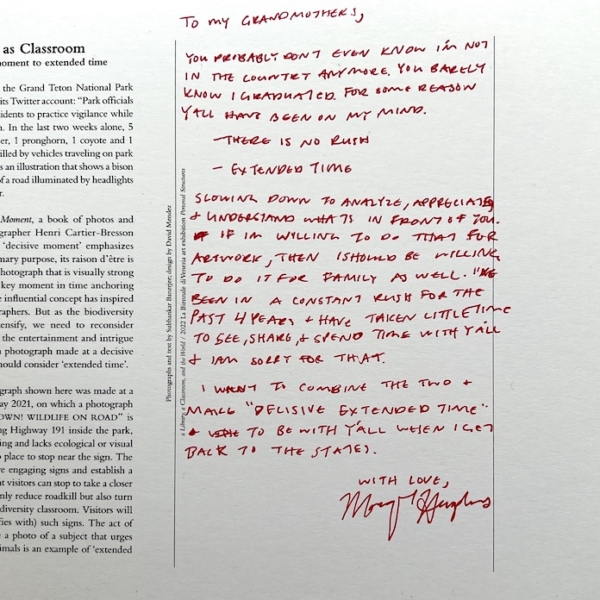 as Classroom
moment to extended time
the Grand Teton National Park
its Twitter account: "Park officials
idents to practice vigilance while
n. In the last two weeks alone, 5
er, 1 pronghorn, 1 coyote and 1
illed by vehicles traveling on park
s an illustration that shows a bison
of a road illuminated by headlights
r.
Moment, a book of photos and
grapher Henri Cartier-Bresson
'decisive moment' emphasizes
mary purpose, its raison d'être is
photograph that is visually strong
key moment in time anchoring
e influential concept has inspired
raphers. But as the biodiversity
ensify, we need to reconsider
the entertainment and intrigue
photograph made at a decisive
hould consider 'extended time'.
graph shown here was made at a
ay 2021, on which a photograph
OWN! WILDLIFE ON ROAD" is
ng Highway 191 inside the park,
ing and lacks ecological or visual
place to stop near the sign. The
e engaging signs and establish a
at visitors can stop to take a closer
nly reduce roadkill but also turn
diversity classroom. Visitors will
fies with) such signs. The act of
e a photo of a subject that urges
imals is an example of 'extended
Photographs and text by Subhankar Banerjee, design by David Mendez
a Library, a Classroom, and the World / 2022 La Biennale di Venezia art exhibition Personal Structures
TO MY GRANDMOTHERS,
YOU PROBABLY DON'T EVEN KNOW I'M NOT
IN THE COUNTRY ANYMORE. YOU BARELY
KNOW I GRADUATED. FOR SOME REASON
Y'ALL HAVE BEEN ON MY MIND.
- THERE IS NO RUSH
- EXTENDED TIME
SLOWING DOWN TO ANALYZE, APPRECIATE,
+ UNDERSTAND WHAT'S IN FRONT OF YOU.
IF I'M WILLING TO DO THAT FOR
ARTWORK, THEN I SHOULD BE WILLING
TO DO IT FOR FAMILY AS WELL. I'VE
BEEN IN A CONSTANT RUSH FOR THE
PAST 4 YEARS + HAVE TAKEN LITTLE TIME
TO SEE, SHARE, + SPEND TIME WITH Y'ALL
+ I AM SORRY FOR THAT.
I WANT TO COMBINE THE TWO +
MAKE "DECISIVE EXTENDED TIME"
+ TO BE WITH Y'ALL WHEN I GET
BACK TO THE STATES.
WITH LOVE,